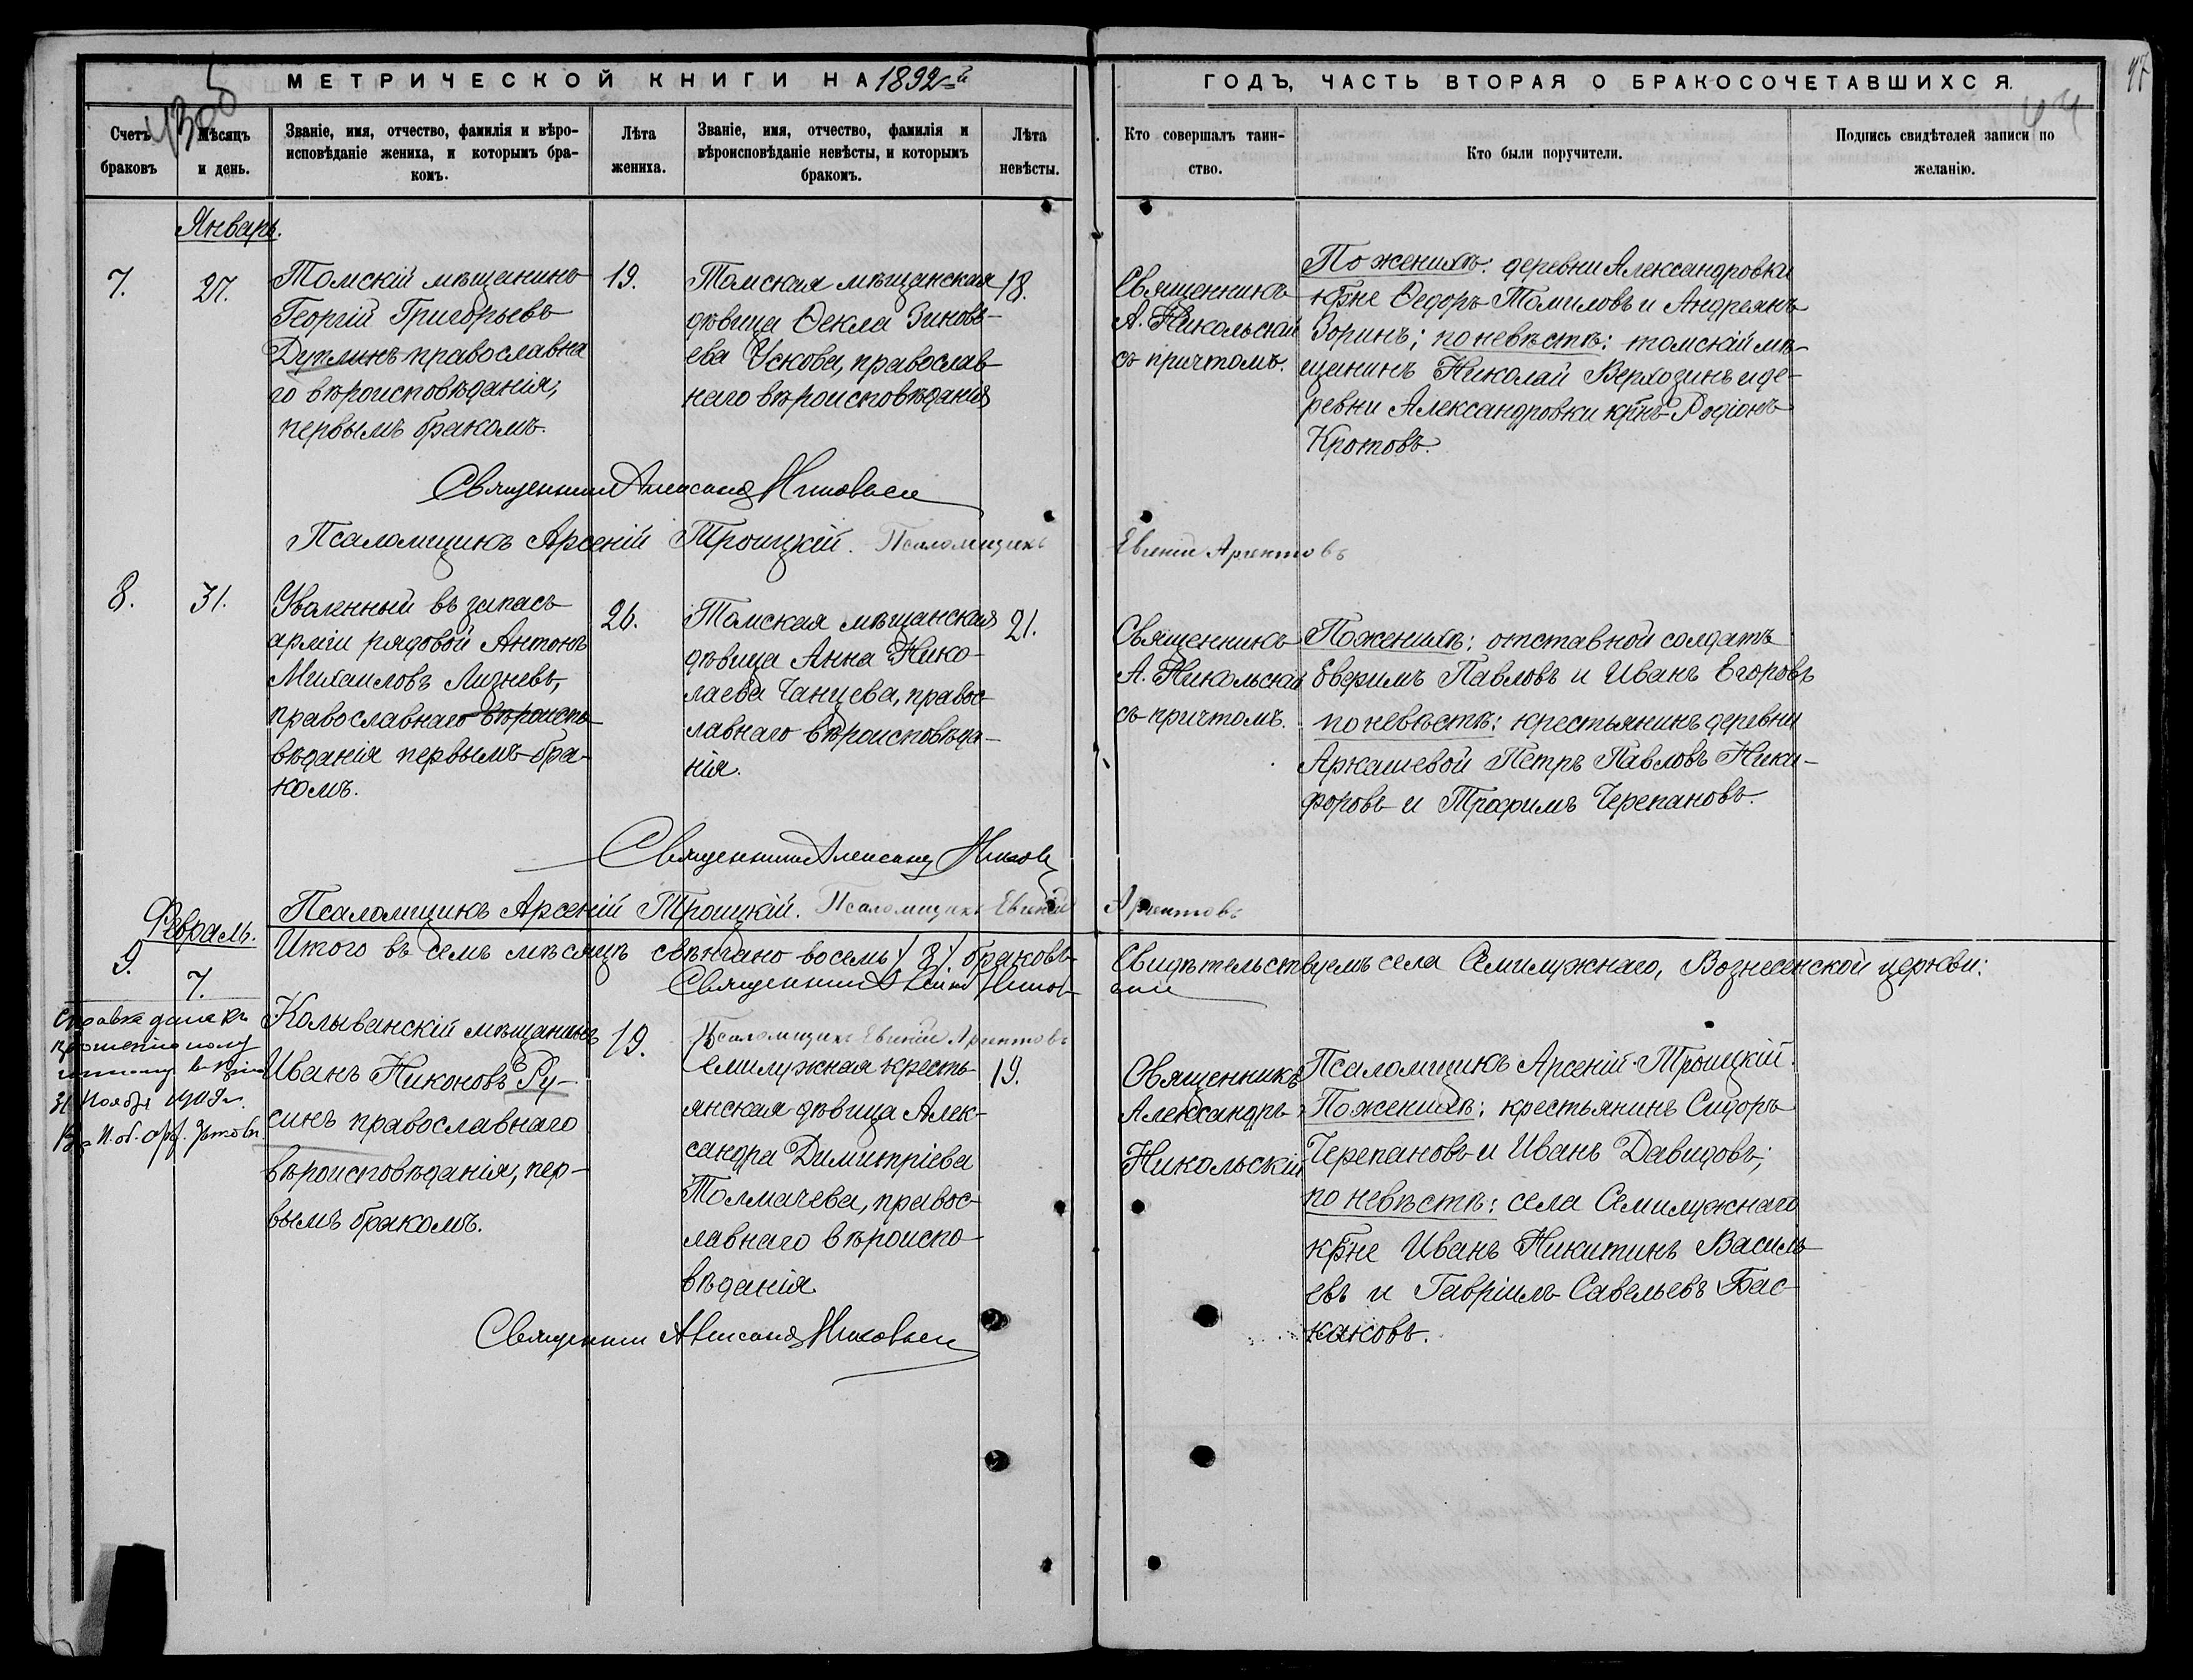 МЕТРИЧЕСКОЙ КНИГИ НА 1892й
ГОДЪ, ЧАСТЬ ВТОРАЯ О БРАКОСОЧЕТАВШИХСЯ.
Счетъ браковъ
Мѣсяцъ и день.
Званіе, имя, отчество, фамилія и вѣро-
исповѣданіе жениха, и которымъ бра-
комъ.
Лѣта
жениха.
Званіе, имя, отчество, фамилія и
вѣроисповѣданіе невѣсты, и которымъ
бракомъ.
Лѣта
невѣсты.
Кто совершалъ таин-
ство.
Кто были поручители.
Подпись свидѣтелей записи по
желанію.
Январь.
7.
27.
Томскій мѣщанинъ
Георгій Григорьевъ
Дуплинъ православна
го вѣроисповѣданія;
первымъ бракомъ.
19.
Томская мѣщанская
дѣвица Ѳекла Зиновь-
ева Ускова, православ-
наго вѣроисповѣданія
18.
Священникъ
А. Никольскій
съ причтомъ.
По женихѣ: деревни Александровки
крне Ѳедоръ Томиловъ и Андреянъ
Зоринъ; по невѣстѣ: томскій мѣ-
щанинъ Николай Верхозинъ и де-
ревни Александровки крнъ Родіонъ
Кротовъ.
Священникъ Александръ Никольскій
Псаломщикъ Арсеній Троицкій. Псаломщикъ Евгеній Аргентовъ
8.
31.
Уволенный въ запасъ
арміи рядовой Антонъ
Михаиловъ Лизневъ,
православнаго вѣроиспо
вѣданія первымъ бра-
комъ.
26.
Томская мѣщанская
дѣвица Анна Нико-
лаева Чанцева, правос-
лавнаго вѣроисповѣда-
нія.
21.
Священникъ
А. Никольскій
съ причтомъ.
По женихѣ: отставной солдатъ
Еверимъ Павловъ и Иванъ Егоровъ
по невѣстѣ: крестьянинъ деревни
Аркашевой Петръ Павловъ Ники-
форовъ и Трофимъ Черепановъ.
Священникъ Александръ Никол
Псаломщикъ Арсеній Троицкій. Псаломщикъ Евгеній Аргентовъ
Итого въ семъ мѣсяцѣ свѣнчано восемь /8/ браковъ
Свидѣтельствуемъ села Семилужнаго, Вознесенской церкви:
Священникъ Никольскій
Псаломщикъ Евгеній Аргентовъ
Псаломщикъ Арсеній Троицкій.
Февраль.
9.
7.
Справка дана къ
прошенію
31 Ноября 1909 г.
Колыванскій мѣщанинъ
Иванъ Никоновъ Ру-
синъ православнаго
вѣроисповѣданія, пер-
вымъ бракомъ.
19.
Семилужная кресть-
янская дѣвица Алек-
сандра Димитріева
Толмачева, правос-
лавнаго вѣроиспо-
вѣданія
19.
Священникъ
Александръ
Никольскій
По женихѣ: крестьянинъ Сидоръ
Черепановъ и Иванъ Давидовъ;
по невѣстѣ: села Семилужнаго
крне Иванъ Никитинъ Василь-
евъ и Гавріилъ Савельевъ Бас-
каковъ.
Священникъ Александръ Никольскій